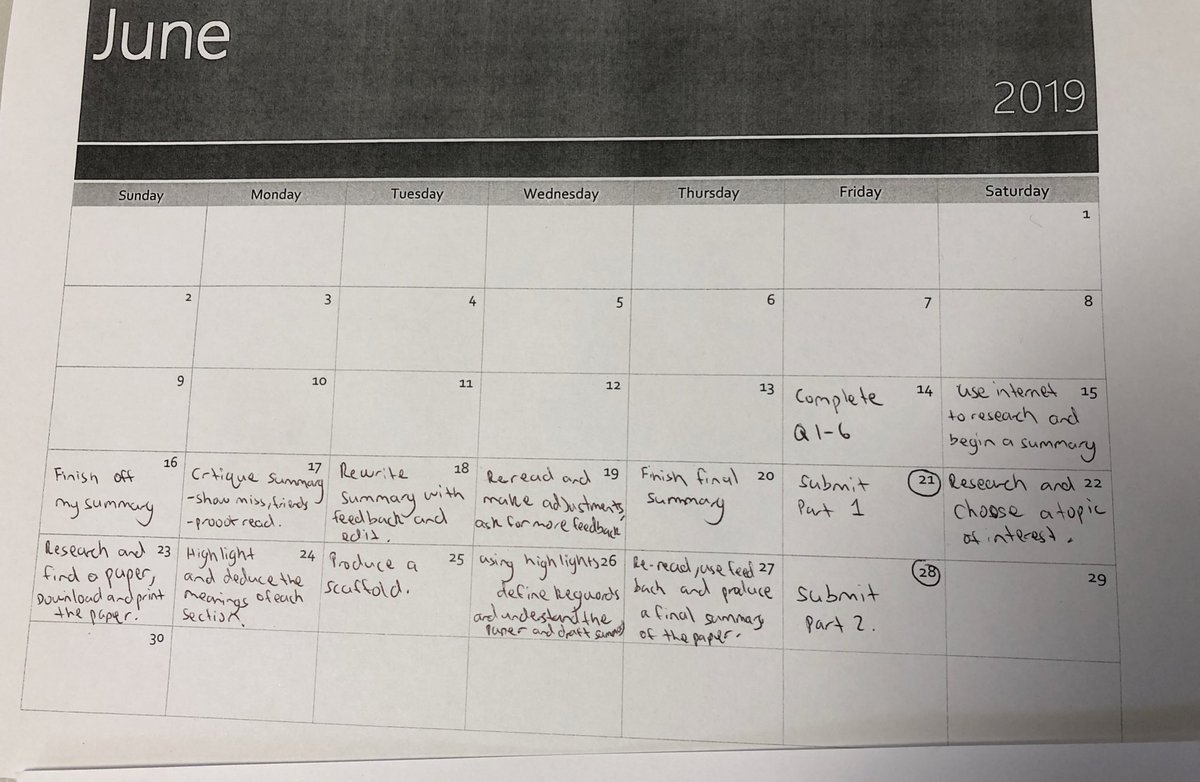 June
2019
Sunday Monday Tuesday Wednesday Thursday Friday Saturday
1
2 3 4 5 6 7 8
9 10 11 12 13 14 15
Complete
Q1-6
use internet
to research and
begin a summary
16 17 18 19 20 21 22
Finish off
my summary
Critique summary
-show miss, friends
-proof read.
Rewrite
summary with
feedback and
edit.
Reread and
make adjustments,
ask for more feedback
Finish final
summary
Submit
Part 1
Research and
choose a topic
of interest.
23 24 25 26 27 28 29
Research and
find a paper,
Download and print
the paper.
Highlight
and deduce the
meanings of each
section.
Produce a
scaffold.
using highlights
define keywords
and understand the
paper and draft
Re-read, use feed
back and produce
a final summary
of the paper.
Submit
Part 2.
30